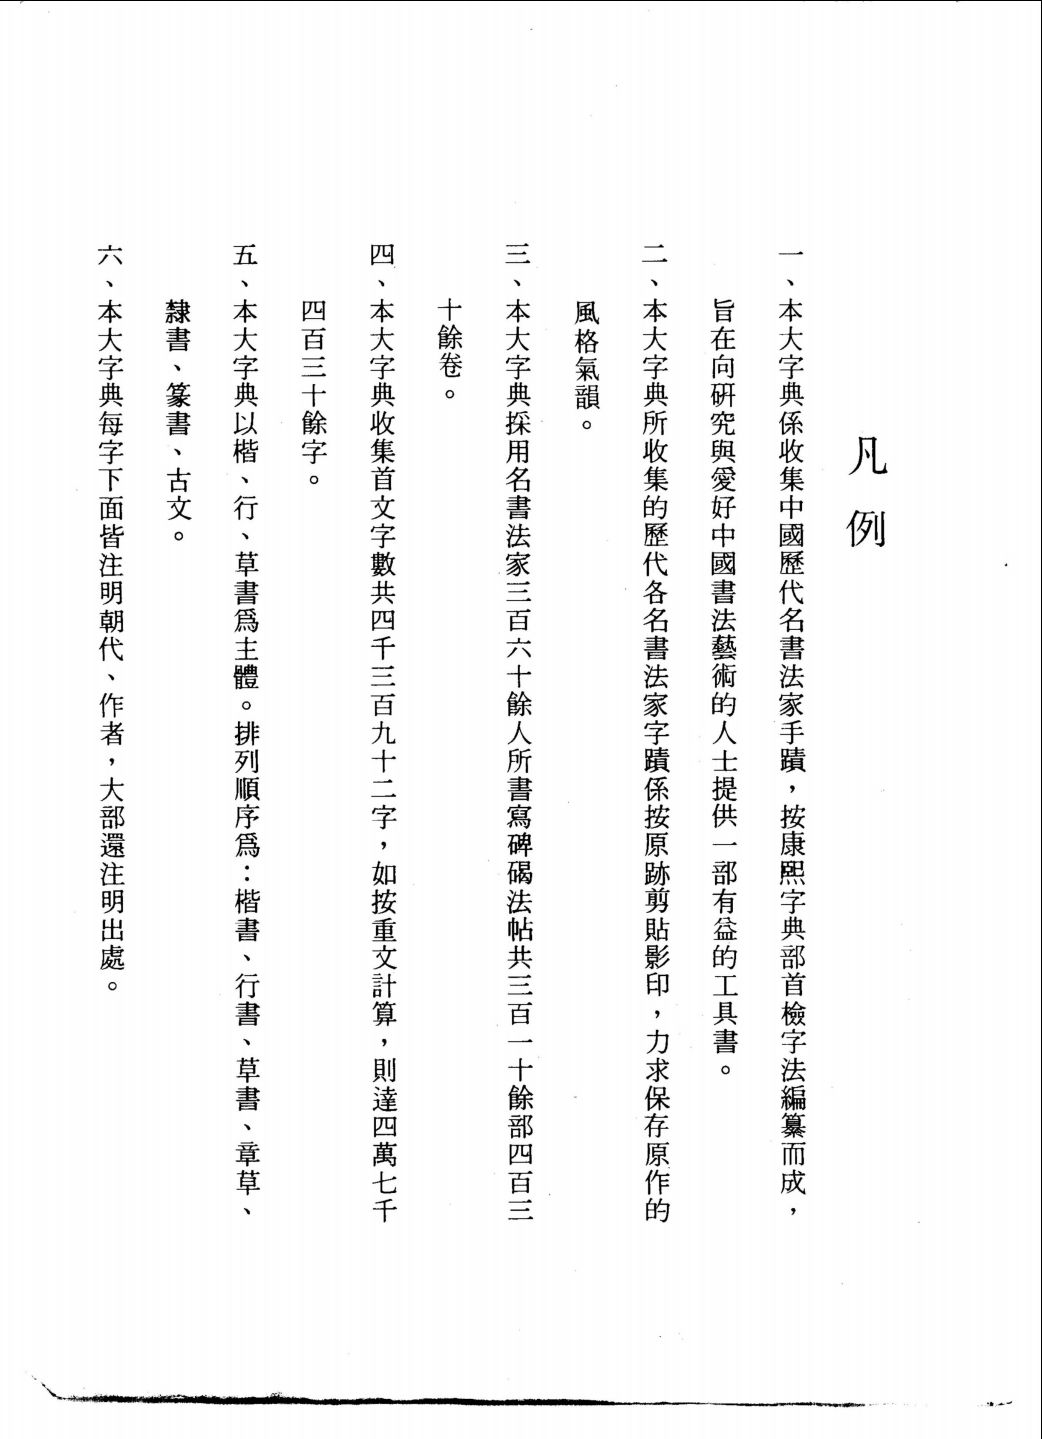 凡例
一、本大字典係收集中國歷代名書法家手蹟，按康熙字典部首檢字法編纂而成，
旨在向研究與愛好中國書法藝術的人士提供一部有益的工具書。
二、本大字典所收集的歷代各名書法家字蹟係按原跡剪貼影印，力求保存原作的
風格氣韻。
三、本大字典採用名書法家三百六十餘人所書寫碑碣法帖共三百一十餘部四百三
十餘卷。
四、本大字典收集首文字數共四千三百九十二字，如按重文計算，則達四萬七千
四百三十餘字。
五、本大字典以楷、行、草書爲主體。排列順序爲：楷書、行書、草書、章草、
隸書、篆書、古文。
六、本大字典每字下面皆注明朝代、作者，大部還注明出處。